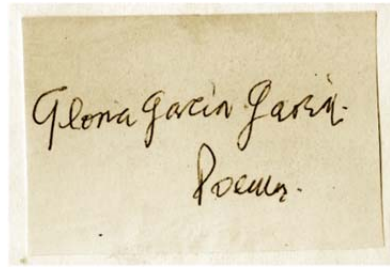 Gloria García García.
Poemas.